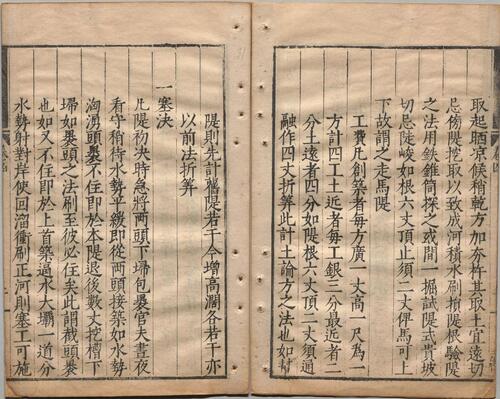 取起晒凉候稍乾方加夯杵其取土宜遠切
忌傍隄挖取以致成河積水刷損隄根驗隄
之法用鉄錐筒探之或間一掘試隄式貴坡
切忌陡峻如根六丈頂止須二丈俾馬可上
下故謂之走馬隄
工費凡創築者每方廣一丈高一尺為一
方計四工土近者每工銀三分最近者二
分土遠者四分如隄根六丈頂二丈須通
融作四丈折算此計土論方之法也如幇
隄則先計舊隄若干今增高濶各若干亦
以前法折算
一塞決
凡隄初決時急將兩頭下埽包裹官夫晝夜
看守稍待水勢平緩即從兩頭接築如水勢
洶湧頭裹不住即於本隄退後數丈挖槽下
埽如裹頭之法刷至彼必住矣此謂截頭裹
也如又不住即於上首築逼水大壩一道分
水勢射對岸使回溜衝刷正河則塞工可施